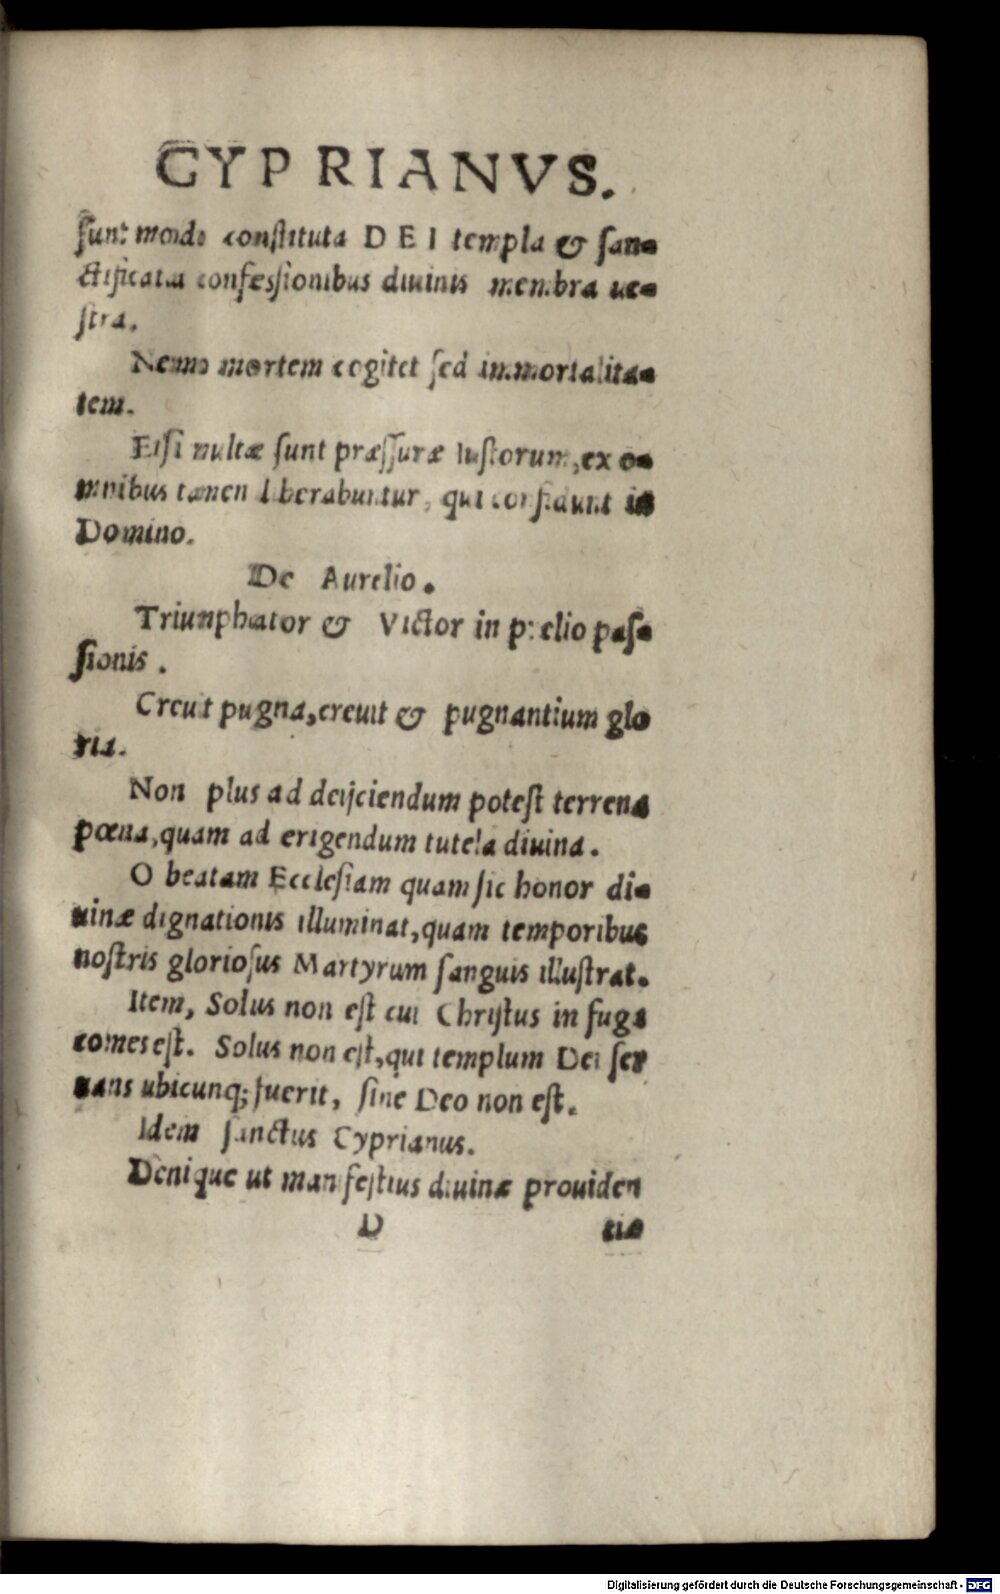 CYPRIANVS.
sunt modo constituta DEI templa & san-
ctificata confessionibus diuinis membra ue-
stra.
Nemo mortem cogitet sed immortalita-
tem.
Etsi multæ sunt præssuræ Iustorum, ex o-
mnibus tamen liberabuntur, qui confidunt in
Domino.
De Aurelio.
Triumphator & Victor in prælio pas-
sionis.
Creuit pugna, creuit & pugnantium glo
ria.
Non plus ad deijciendum potest terrena
pœna, quam ad erigendum tutela diuina.
O beatam Ecclesiam quam sic honor di-
uinæ dignationis illuminat, quam temporibus
nostris gloriosus Martyrum sanguis illustrat.
Item, Solus non est cui Christus in fuga
comes est. Solus non est, qui templum Dei ser
uans ubicunq; fuerit, sine Deo non est.
Idem sanctus Cyprianus.
Denique ut manifestius diuinæ prouiden
D tiæ
Digitalisierung gefördert durch die Deutsche Forschungsgemeinschaft - DFG